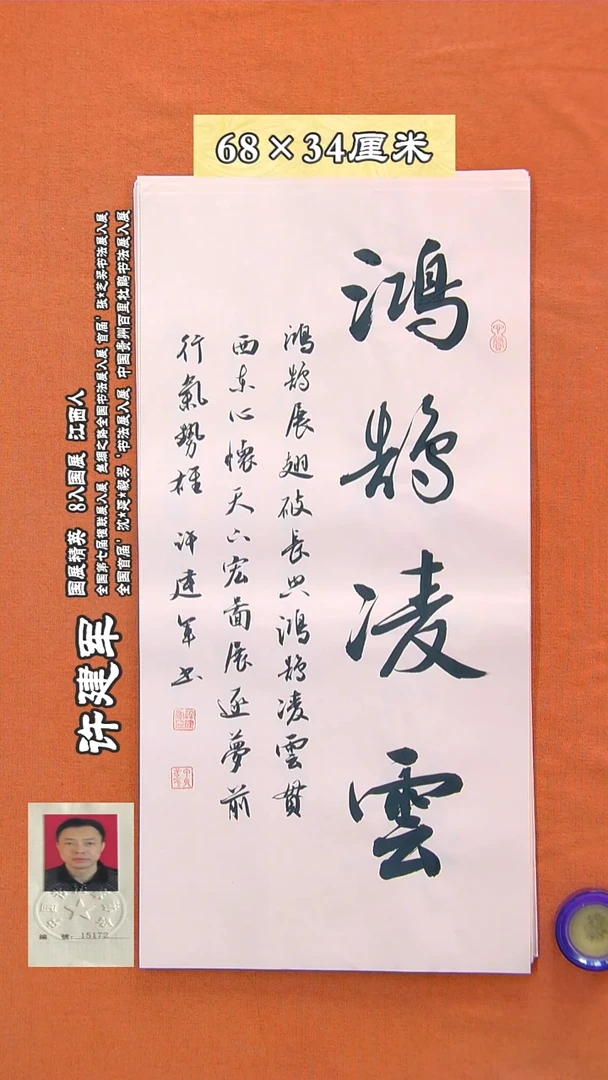 68×34厘米
鴻鹄凌雲
鴻鹄展翅破長空鴻鹄凌雲貫
西東心懷天下宏圖展逐夢前
行氣勢雄 许建军书
许建军
国展精英 8入国展 江西人
全国第七届楹联展入展 丝绸之路全国书法展入展 首届'张*芝奖书法展入展
全国首届'沈*延*毅奖'书法展入展 中国贵州百里杜鹃书法展入展
編 號：15172